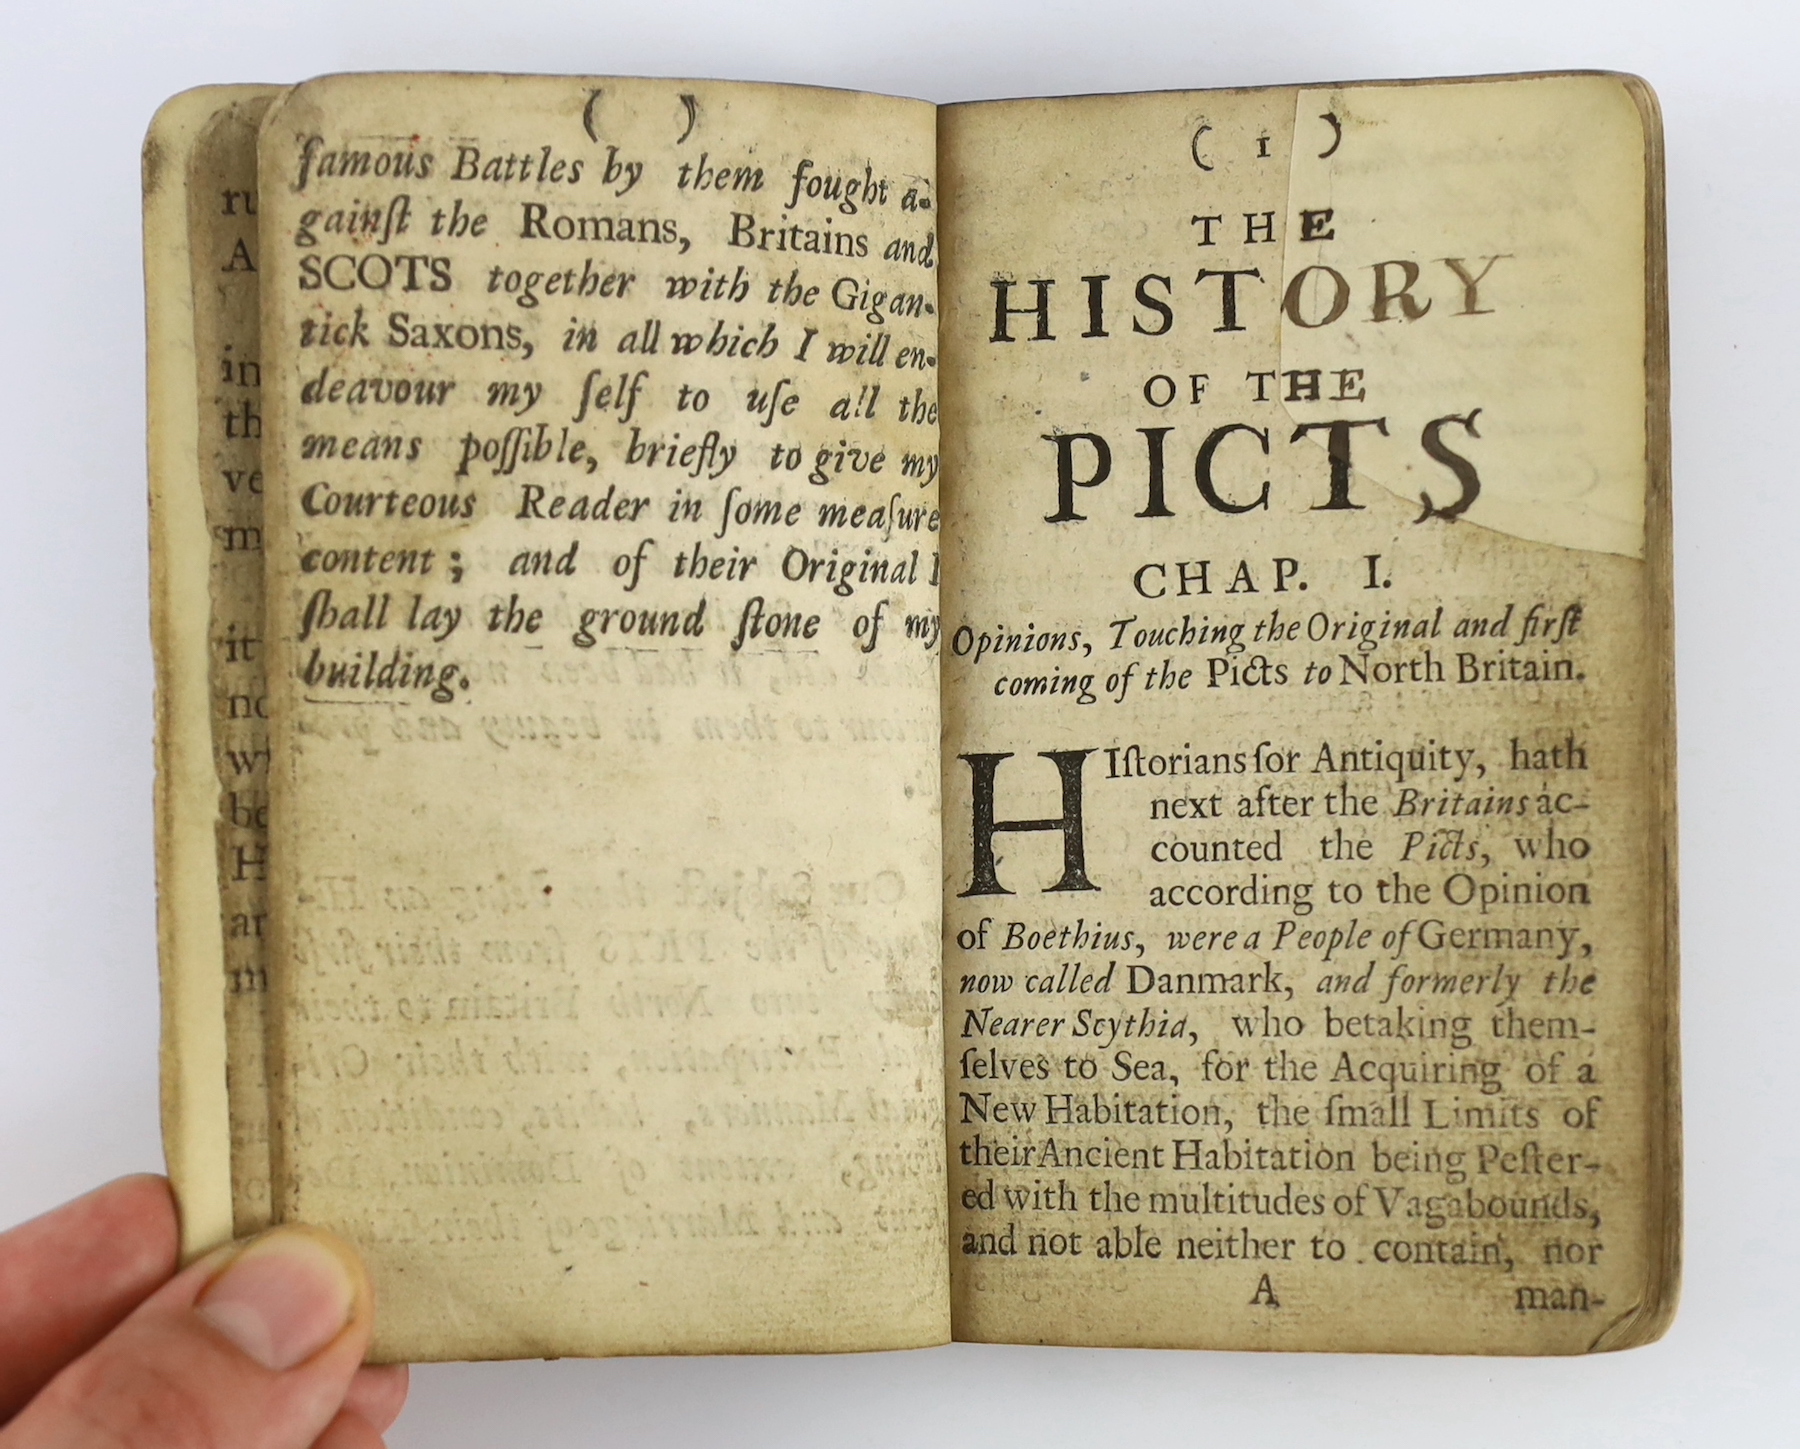 ( )
famous Battles by them fought a-
gainſt the Romans, Britains and
SCOTS together with the Gigan-
tick Saxons, in all which I will en-
deavour my ſelf to uſe all the
means poſſible, briefly to give my
Courteous Reader in ſome meaſure
content; and of their Original I
ſhall lay the ground ſtone of my
building.
( 1 )
THE
HISTORY
OF THE
PICTS
CHAP. I.
Opinions, Touching the Original and firſt
coming of the Picts to North Britain.
HIſtorians for Antiquity, hath
next after the Britains ac-
counted the Picts, who
according to the Opinion
of Boethius, were a People of Germany,
now called Danmark, and formerly the
Nearer Scythia, who betaking them-
ſelves to Sea, for the Acquiring of a
New Habitation, the ſmall Limits of
their Ancient Habitation being Peſter-
ed with the multitudes of Vagabounds,
and not able neither to contain, nor
A man-